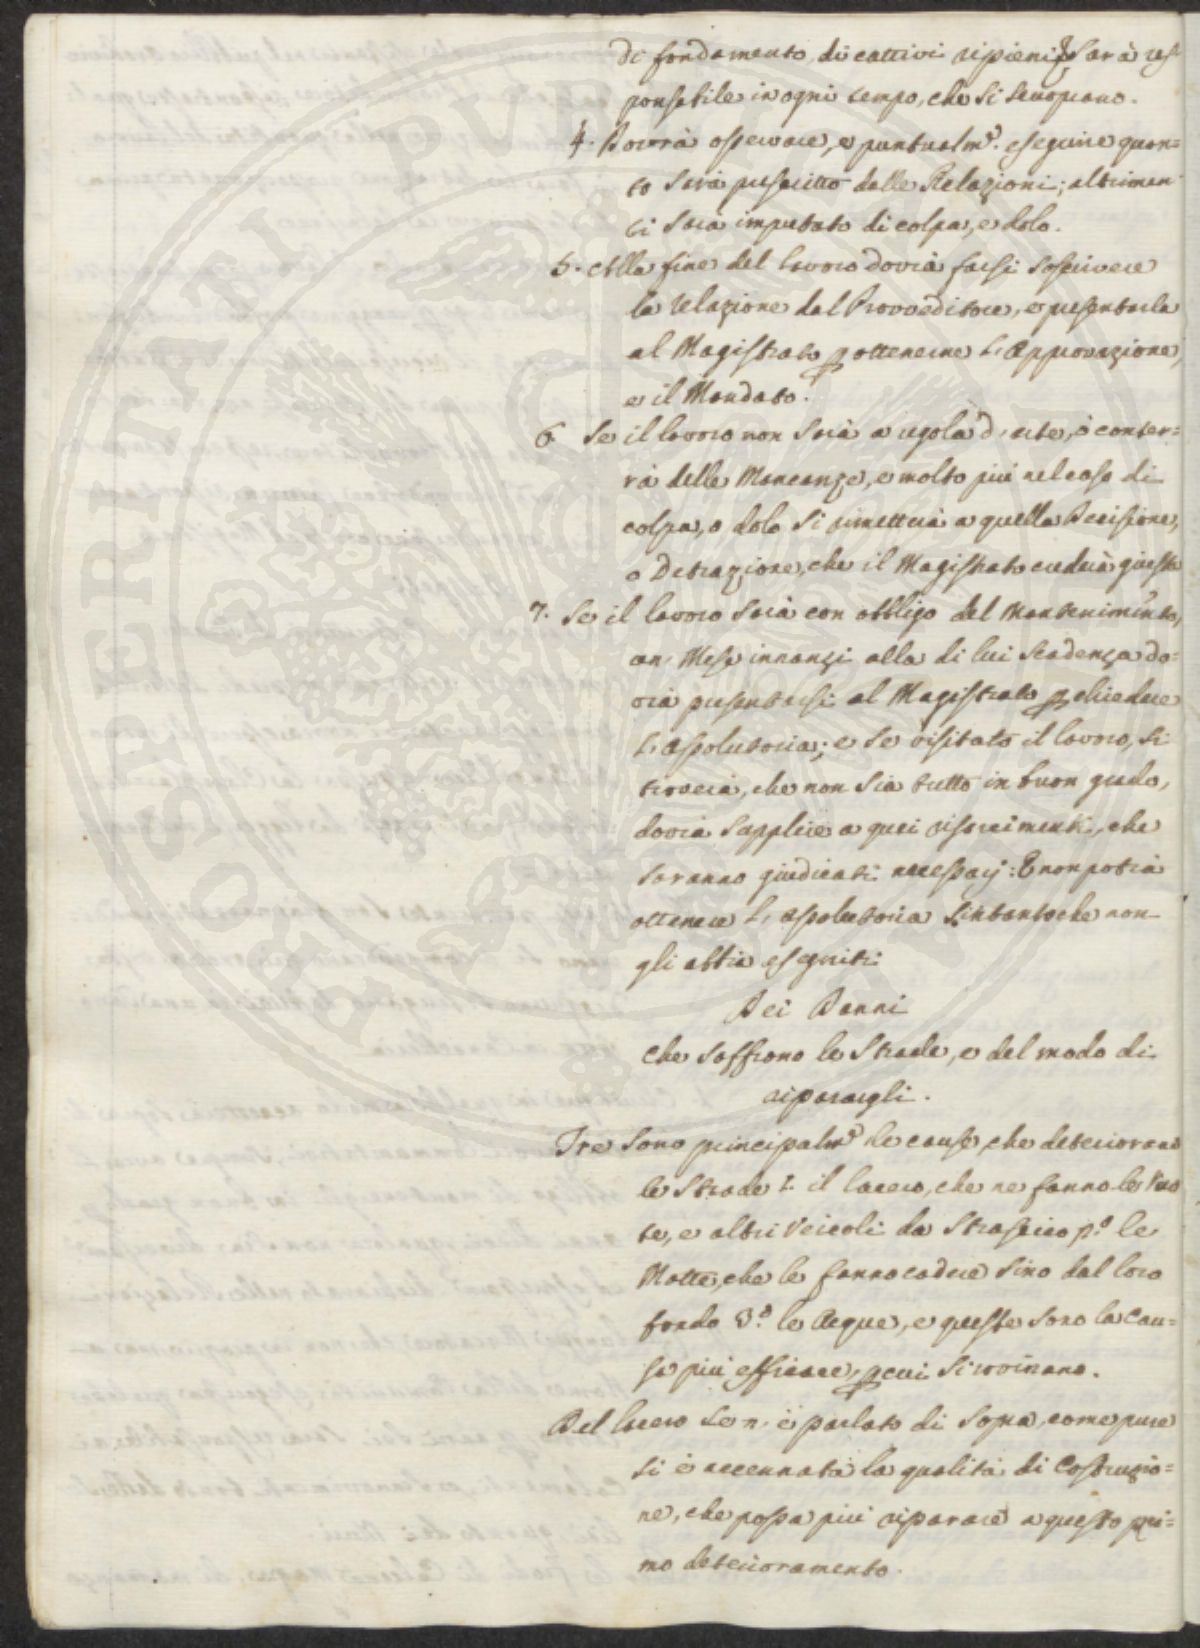 di fondamento di cattivi ripieni, e sarà res=
ponsabile in ogni tempo, che si scuoprano.
4. Dovrà osservare, e puntualm.e eseguire quan=
to sarà prescritto dalle Relazioni; altrimen
ti sarà imputato di colpa, e dolo.
5. Alla fine del lavoro dovrà farsi soscrivere
la relazione dal Provveditore, e presentarla
al Magistrato p ottenerne l'Approvazione,
e il Mandato.
6. Se il lavoro non sarà a regola d'arte, ò conter=
rà delle Mancanze, e molto più nel caso di
colpa, o dolo si rimetterà a quella Decisione,
o Detrazione, che il Magistrato crederà giusta
7. Se il lavoro sarà con obbligo del Mantenimento,
un Mese innanzi alla di lui scadenza do=
vrà presentarsi al Magistrato p chiedere
l'Assolutoria; e se visitato il lavoro, si
troverà, che non sia tutto in buon grado,
dovrà supplire a quei risarcimenti, che
saranno giudicati necessarj: E non potrà
ottenere l'assolutoria sintantoche non
gli abbia eseguiti
Dei Danni
Che soffrono le Strade, e del modo di
riparargli.
Tre sono principalm.e le cause, che deteriorano
le Strade 1. il lacero, che ne fanno le Ruo
te, e altri Veicoli da Strascico 2.o le
Motte, che le fanno cadere sino dal loro
fondo 3.o le Acque, e queste sono la cau=
sa più efficace, p cui si rovinano.
Del lacero se n'è parlato di sopra, come pure
si è accennata la qualità di Costruzio=
ne, che possa più riparare a questo pri=
mo deterioramento.
PROSPERITATI PVBLICAE